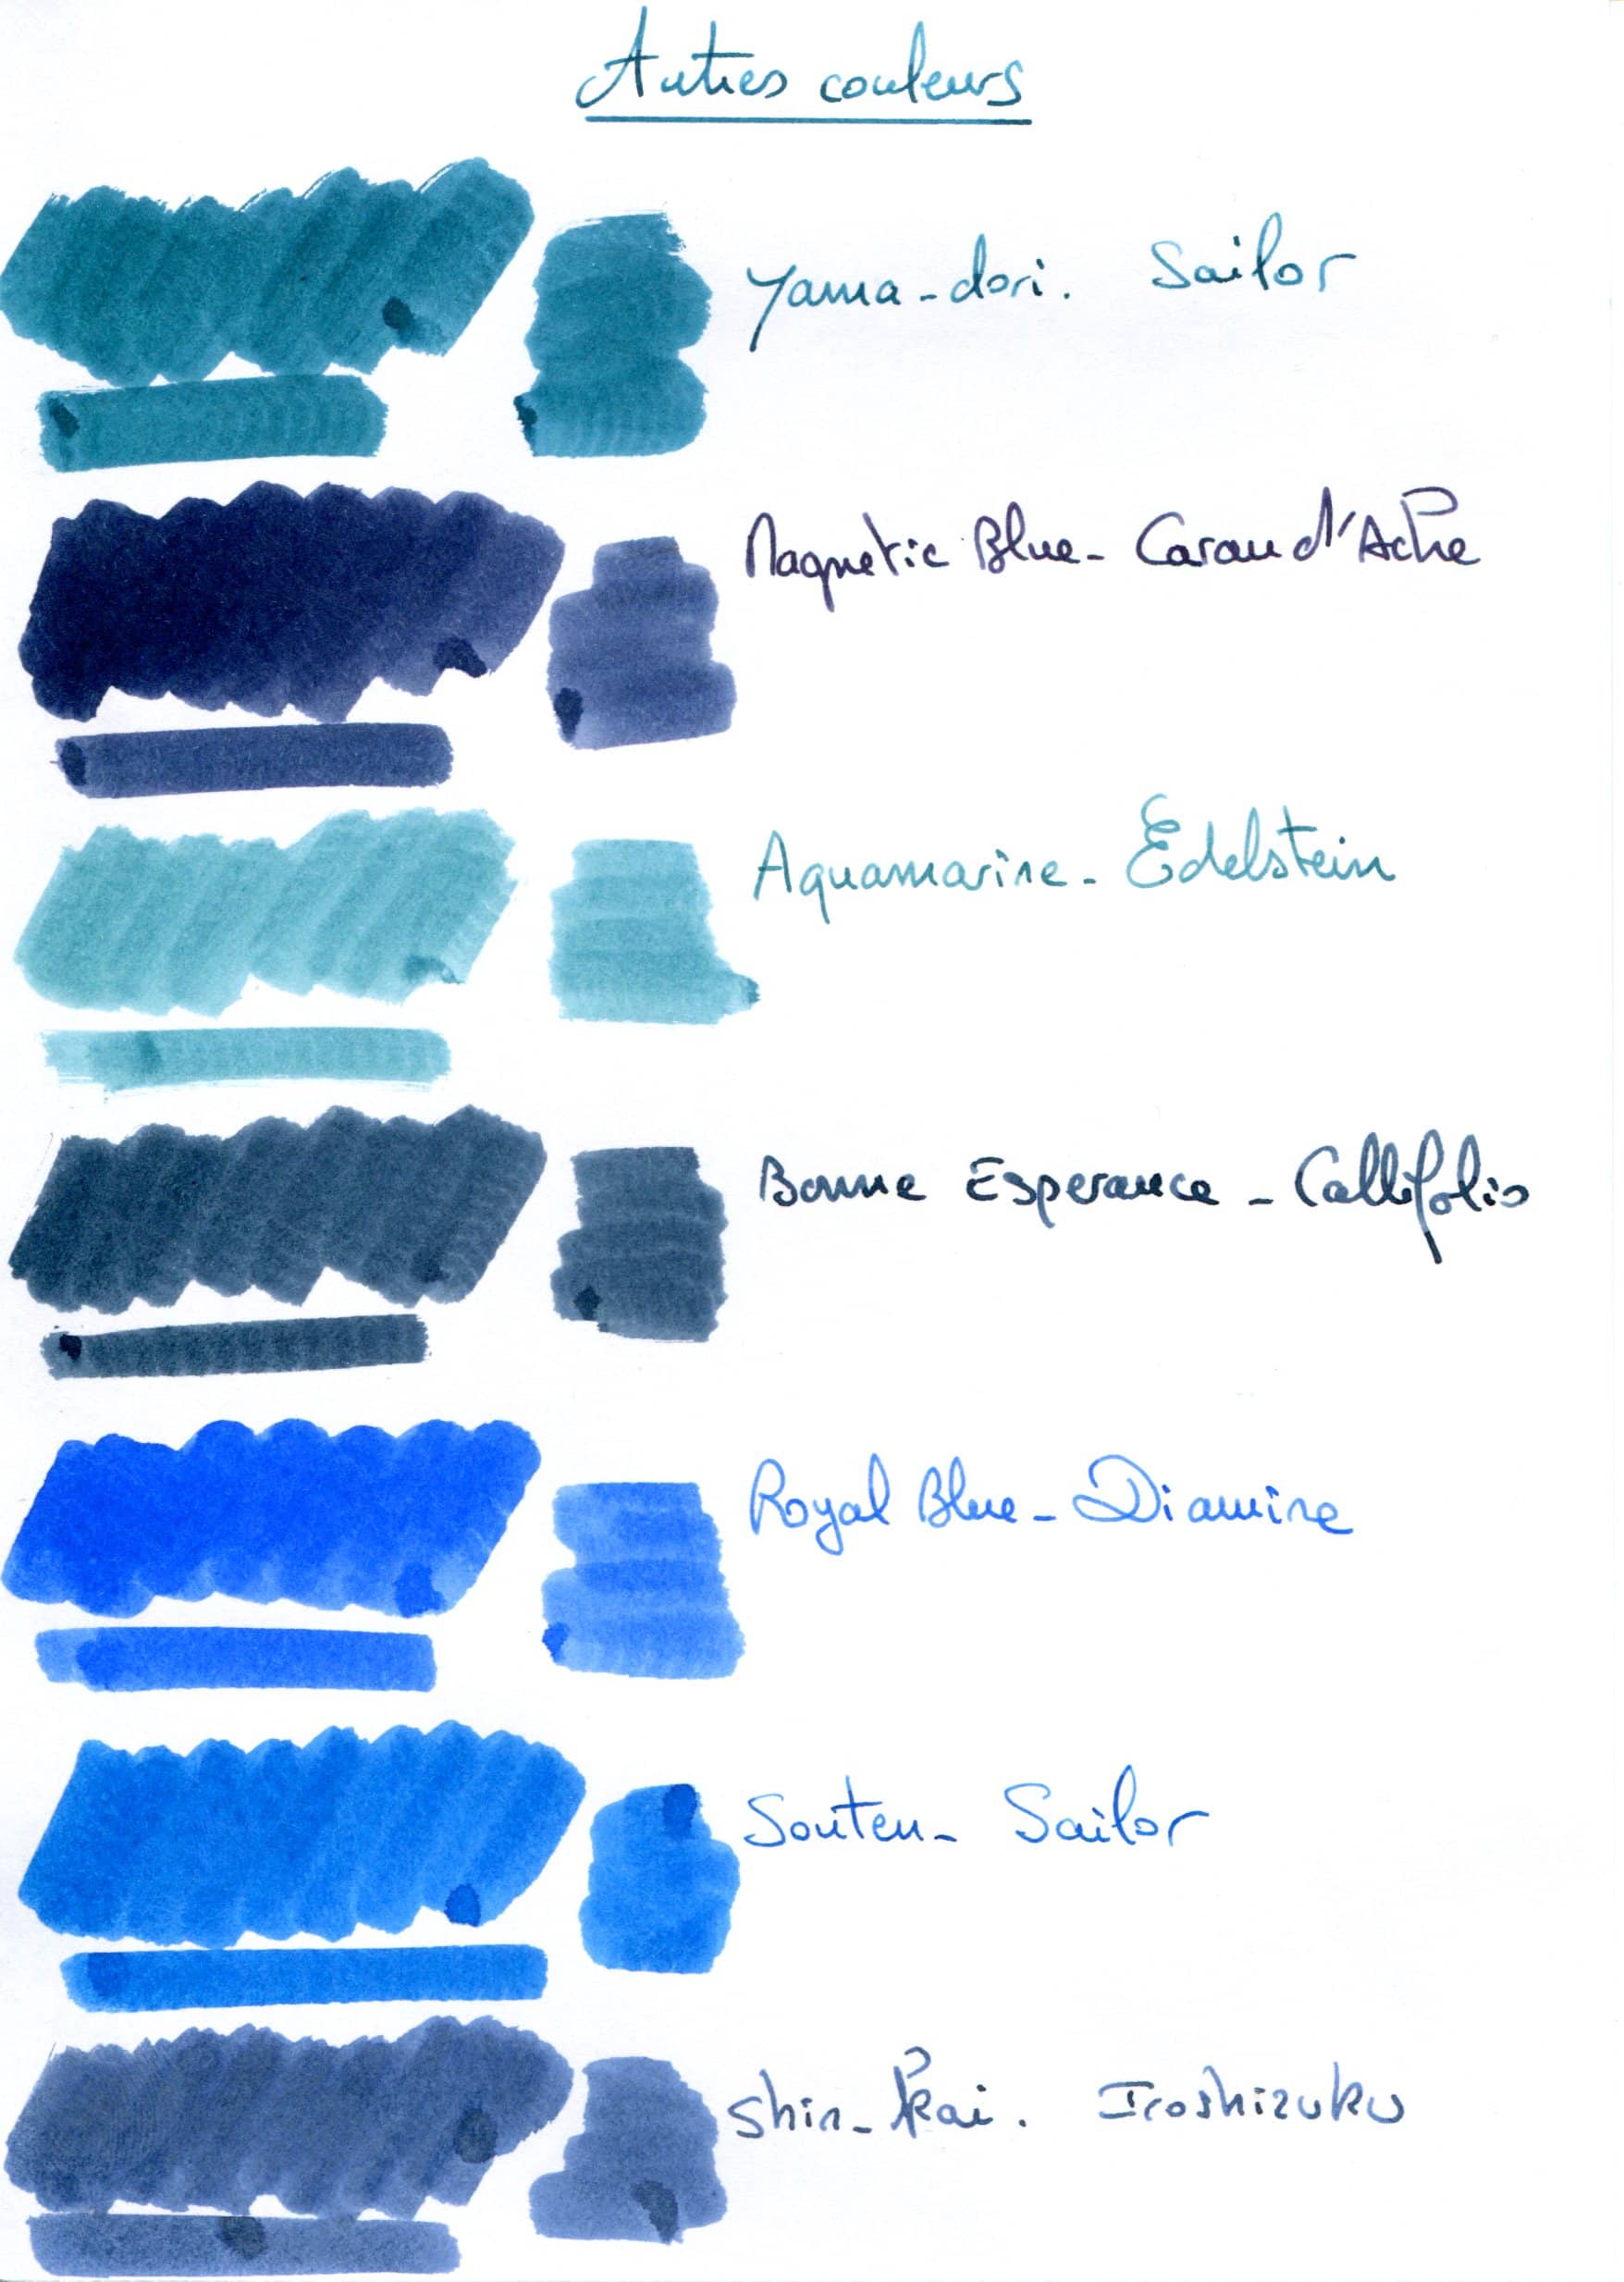 Autres couleurs
Yama-dori. Sailor
Magnetic Blue - Caran d'Ache
Aquamarine - Edelstein
Bonne Esperance - Callifolio
Royal Blue - Diamine
Souten - Sailor
Shin-kai. Iroshizuku